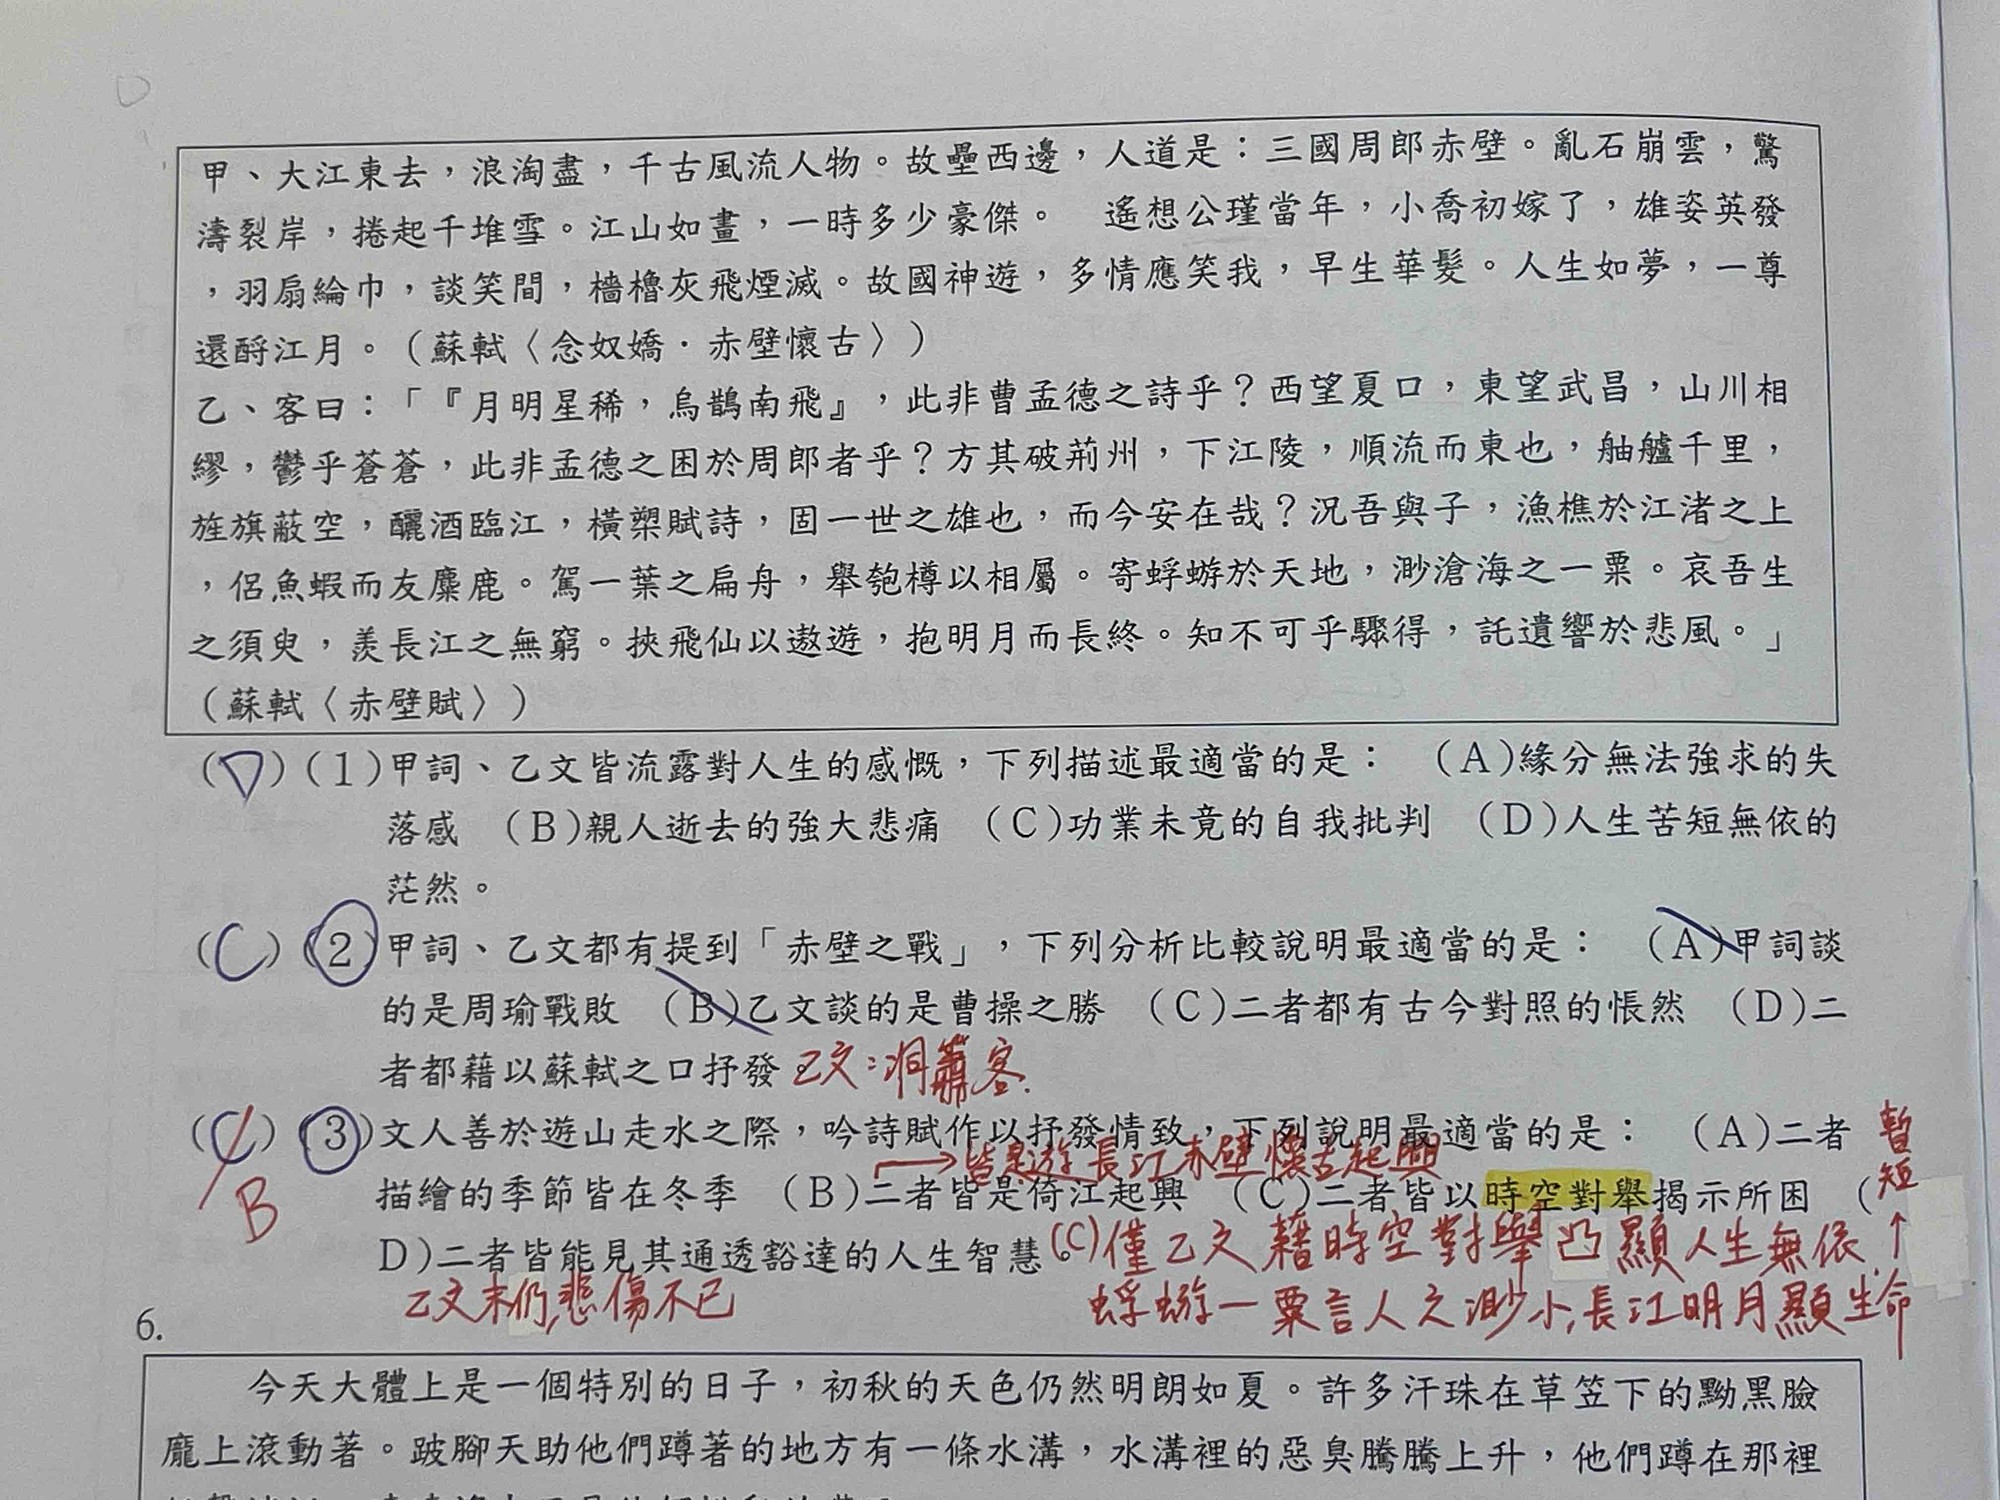 甲、大江東去，浪淘盡，千古風流人物。故壘西邊，人道是：三國周郎赤壁。亂石崩雲，驚
濤裂岸，捲起千堆雪。江山如畫，一時多少豪傑。　遙想公瑾當年，小喬初嫁了，雄姿英發
，羽扇綸巾，談笑間，檣櫓灰飛煙滅。故國神遊，多情應笑我，早生華髮。人生如夢，一尊
還酹江月。（蘇軾〈念奴嬌．赤壁懷古〉）
乙、客曰：「『月明星稀，烏鵲南飛』，此非曹孟德之詩乎？西望夏口，東望武昌，山川相
繆，鬱乎蒼蒼，此非孟德之困於周郎者乎？方其破荊州，下江陵，順流而東也，舳艫千里，
旌旗蔽空，釃酒臨江，橫槊賦詩，固一世之雄也，而今安在哉？況吾與子，漁樵於江渚之上
，侶魚蝦而友麋鹿。駕一葉之扁舟，舉匏樽以相屬。寄蜉蝣於天地，渺滄海之一粟。哀吾生
之須臾，羨長江之無窮。挾飛仙以遨遊，抱明月而長終。知不可乎驟得，託遺響於悲風。」
（蘇軾〈赤壁賦〉）
(D)(1)甲詞、乙文皆流露對人生的感慨，下列描述最適當的是：　(A)緣分無法強求的失
落感　(B)親人逝去的強大悲痛　(C)功業未竟的自我批判　(D)人生苦短無依的
茫然。
(C)(2)甲詞、乙文都有提到「赤壁之戰」，下列分析比較說明最適當的是：　(A)甲詞談
的是周瑜戰敗　(B)乙文談的是曹操之勝　(C)二者都有古今對照的悵然　(D)二
者都藉以蘇軾之口抒發。乙文：洞簫客.
(C)(3)文人善於遊山走水之際，吟詩賦作以抒發情致，下列說明最適當的是：　(A)二者
暫短
皆是遊長江赤壁懷古起興
B
描繪的季節皆在冬季　(B)二者皆是倚江起興　(C)二者皆以時空對舉揭示所困　(
D)二者皆能見其通透豁達的人生智慧。
(C)僅乙文藉時空對舉凸顯人生無依.
乙文末仍悲傷不已
蜉蝣一粟言人之渺小,長江明月顯生命
6.
今天大體上是一個特別的日子，初秋的天色仍然明朗如夏。許多汗珠在草笠下的黝黑臉
龐上滾動著。跛腳天助他們蹲著的地方有一條水溝，水溝裡的惡臭騰騰上升，他們蹲在那裡